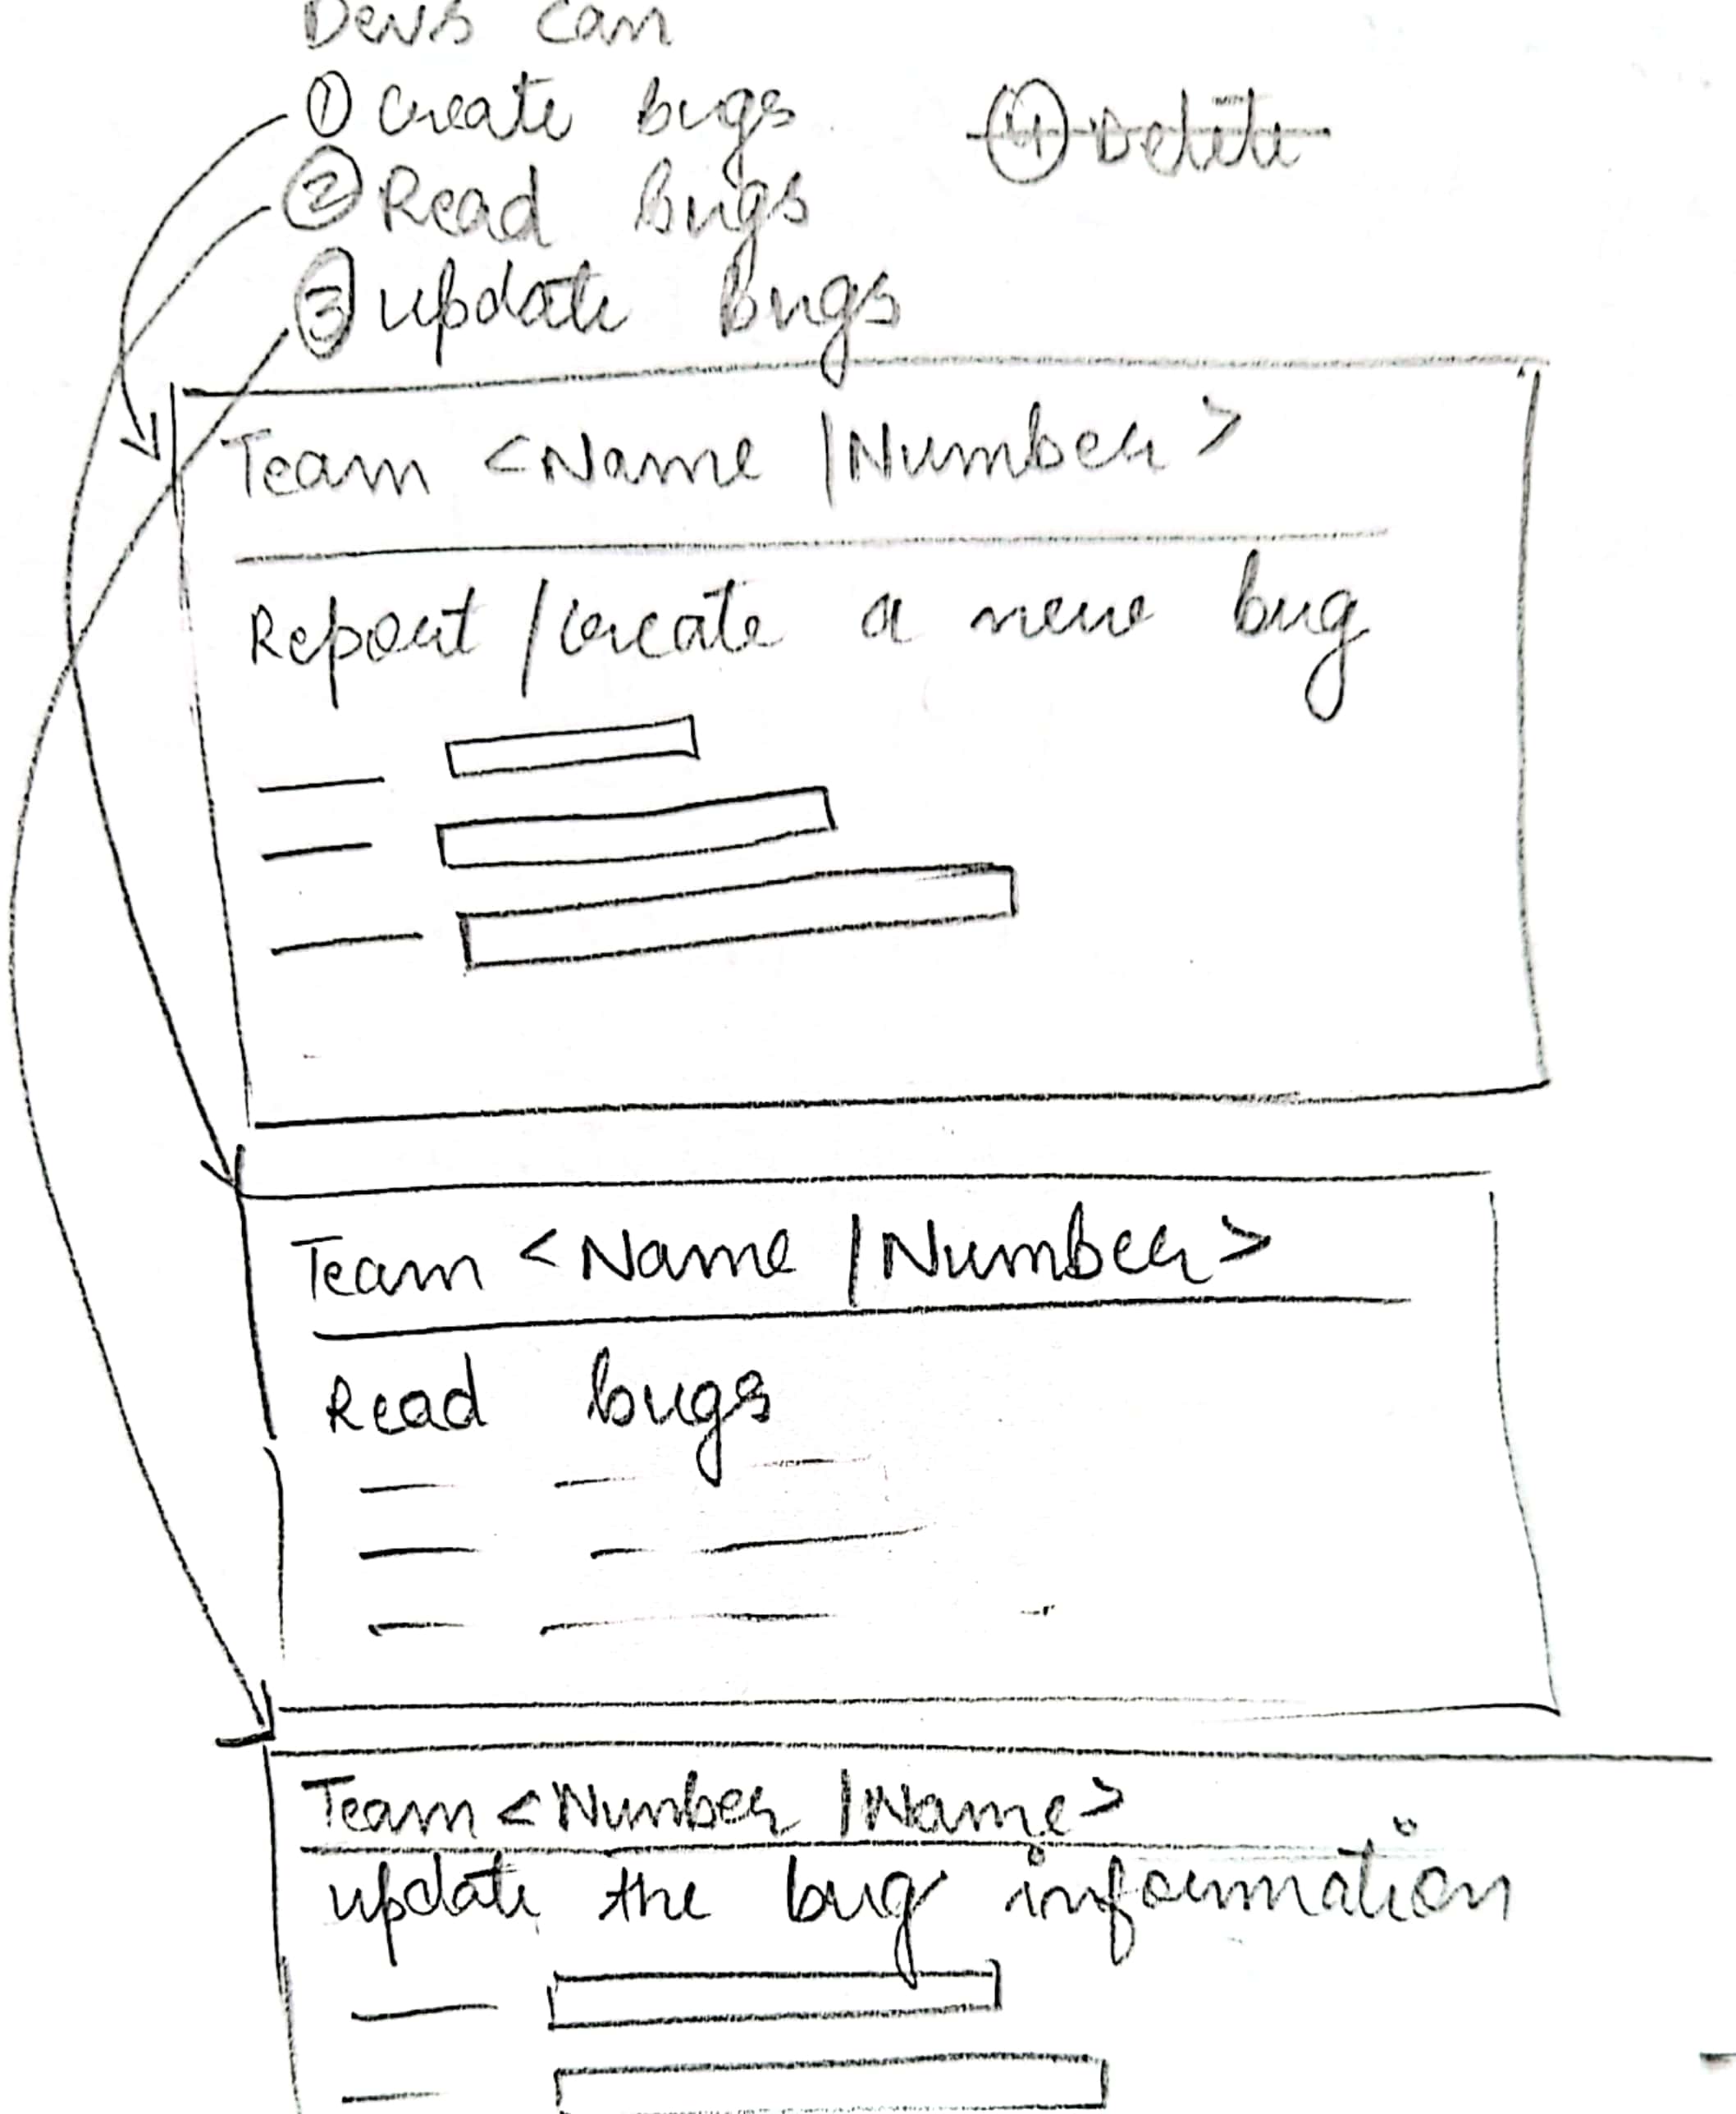 Devs can
① Create bugs
④ Delete
② Read bugs
③ update bugs
Team <Name | Number>
Report / create a new bug
Team <Name | Number>
Read bugs
Team <Number | Name>
update the bug information